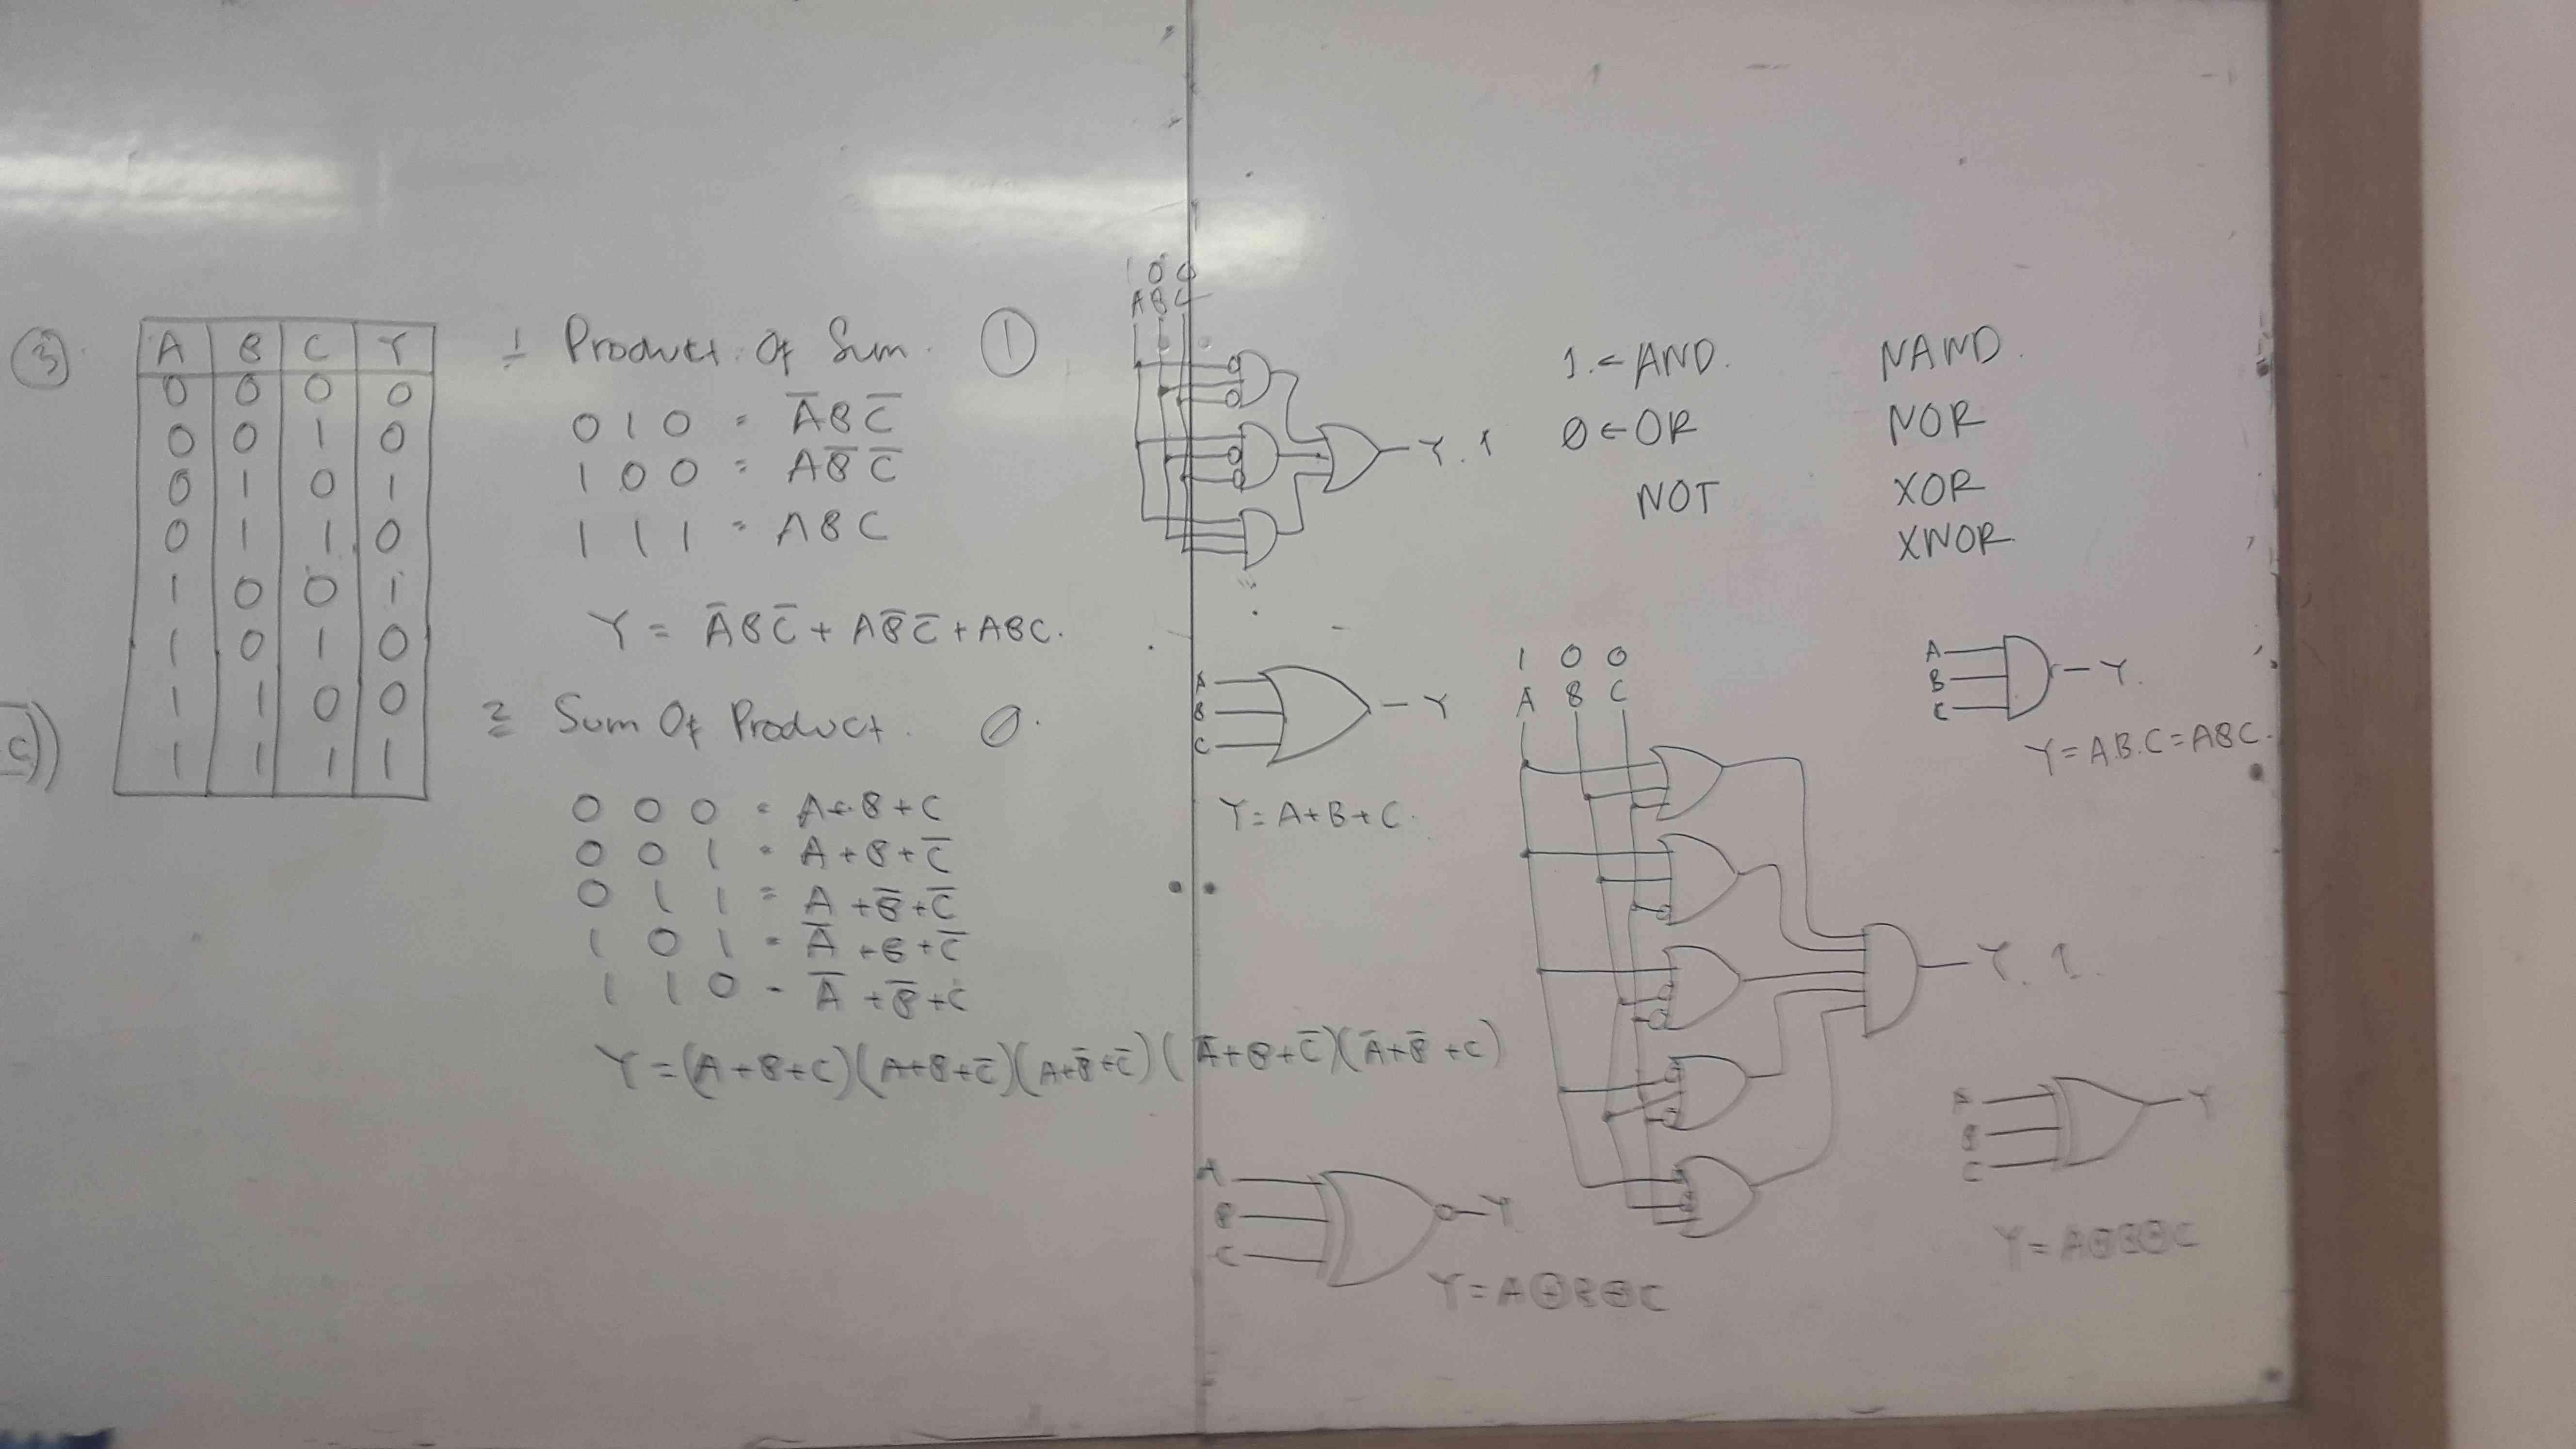 ③
A B C Y
0 0 0 0
0 0 1 0
0 1 0 1
0 1 1 0
1 0 0 1
1 0 1 0
1 1 0 0
1 1 1 1
C))
1 Product Of Sum. ①
0 1 0 = A̅BC̅
1 0 0 = AB̅C̅
1 1 1 = ABC
Y = A̅BC̅ + AB̅C̅ + ABC.
2 Sum Of Product. 0.
0 0 0 = A+B+C
0 0 1 = A+B+C̅
0 1 1 = A+B̅+C̅
1 0 1 = A̅+B+C̅
1 1 0 = A̅+B̅+C
Y = (A+B+C)(A+B+C̅)(A+B̅+C̅)(A̅+B+C̅)(A̅+B̅+C)
1 0 0
A B C
Y. 1
1. ← AND. NAND.
0 ← OR NOR
NOT XOR
XNOR
A
B
C
Y
Y = A+B+C.
1 0 0
A B C
Y. 1.
A
B
C
Y.
Y = A.B.C = ABC.
A
B
C
Y
Y = A⊕B⊕C
A
B
C
Y
Y = A⊕B⊕C